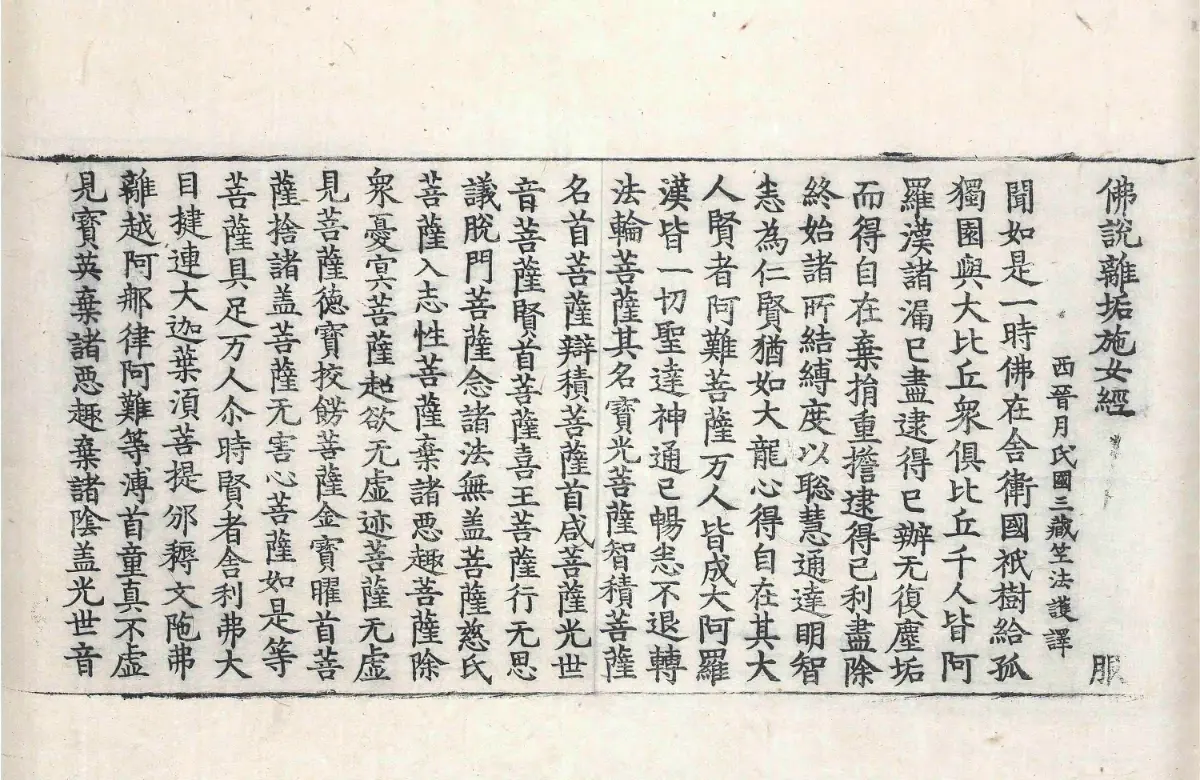 佛說離垢施女經 服
西晉月氏國三藏竺法護譯
聞如是一時佛在舍衛國祇樹給孤
獨園與大比丘衆俱比丘千人皆阿
羅漢諸漏已盡逮得已辦无復塵垢
而得自在棄捐重擔逮得已利盡除
終始諸所結縛度以聡慧通達明智
悉為仁賢猶如大龍心得自在其大
人賢者阿難菩薩万人皆成大阿羅
漢皆一切聖達神通已暢悉不退轉
法輪菩薩其名寶光菩薩智積菩薩
名首菩薩辯積菩薩首咸菩薩光世
音菩薩賢首菩薩喜王菩薩行无思
議脫門菩薩念諸法無盖菩薩慈氏
菩薩入志性菩薩棄諸惡趣菩薩除
衆憂冥菩薩超欲无虛迹菩薩无虛
見菩薩德寶挍餝菩薩金寶曜首菩
薩捨諸盖菩薩无害心菩薩如是等
菩薩具足万人尒時賢者舍利弗大
目揵連大迦葉湏菩提邠耨文陁弗
離越阿那律阿難等溥首童真不虛
見寶英棄諸惡趣棄諸陰盖光世音